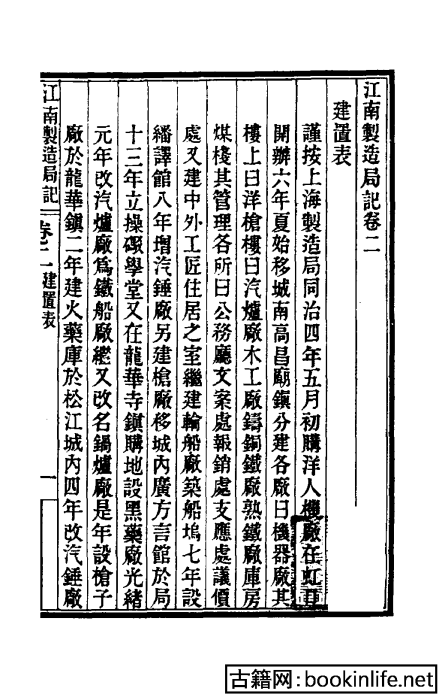 江南製造局記卷二
建置表
謹按上海製造局同治四年五月初購洋人機廠在虹口
開辦六年夏始移城南高昌廟鎭分建各廠曰機器廠其
樓上曰洋槍樓曰汽爐廠木工廠鑄銅鐵廠熟鐵廠庫房
煤棧其管理各所曰公務廳文案處報銷處支應處議價
處又建中外工匠住居之室繼建輪船廠築船塢七年設
繙譯館八年增汽錘廠另建槍廠移城內廣方言館於局
十三年立操礮學堂又在龍華寺鎭購地設黑藥廠光緒
元年改汽爐廠爲鐵船廠繼又改名鍋爐廠是年設槍子
廠於龍華鎭二年建火藥庫於松江城內四年改汽錘廠
江南製造局記 卷二 建置表 一
古籍网:bookinlife.net